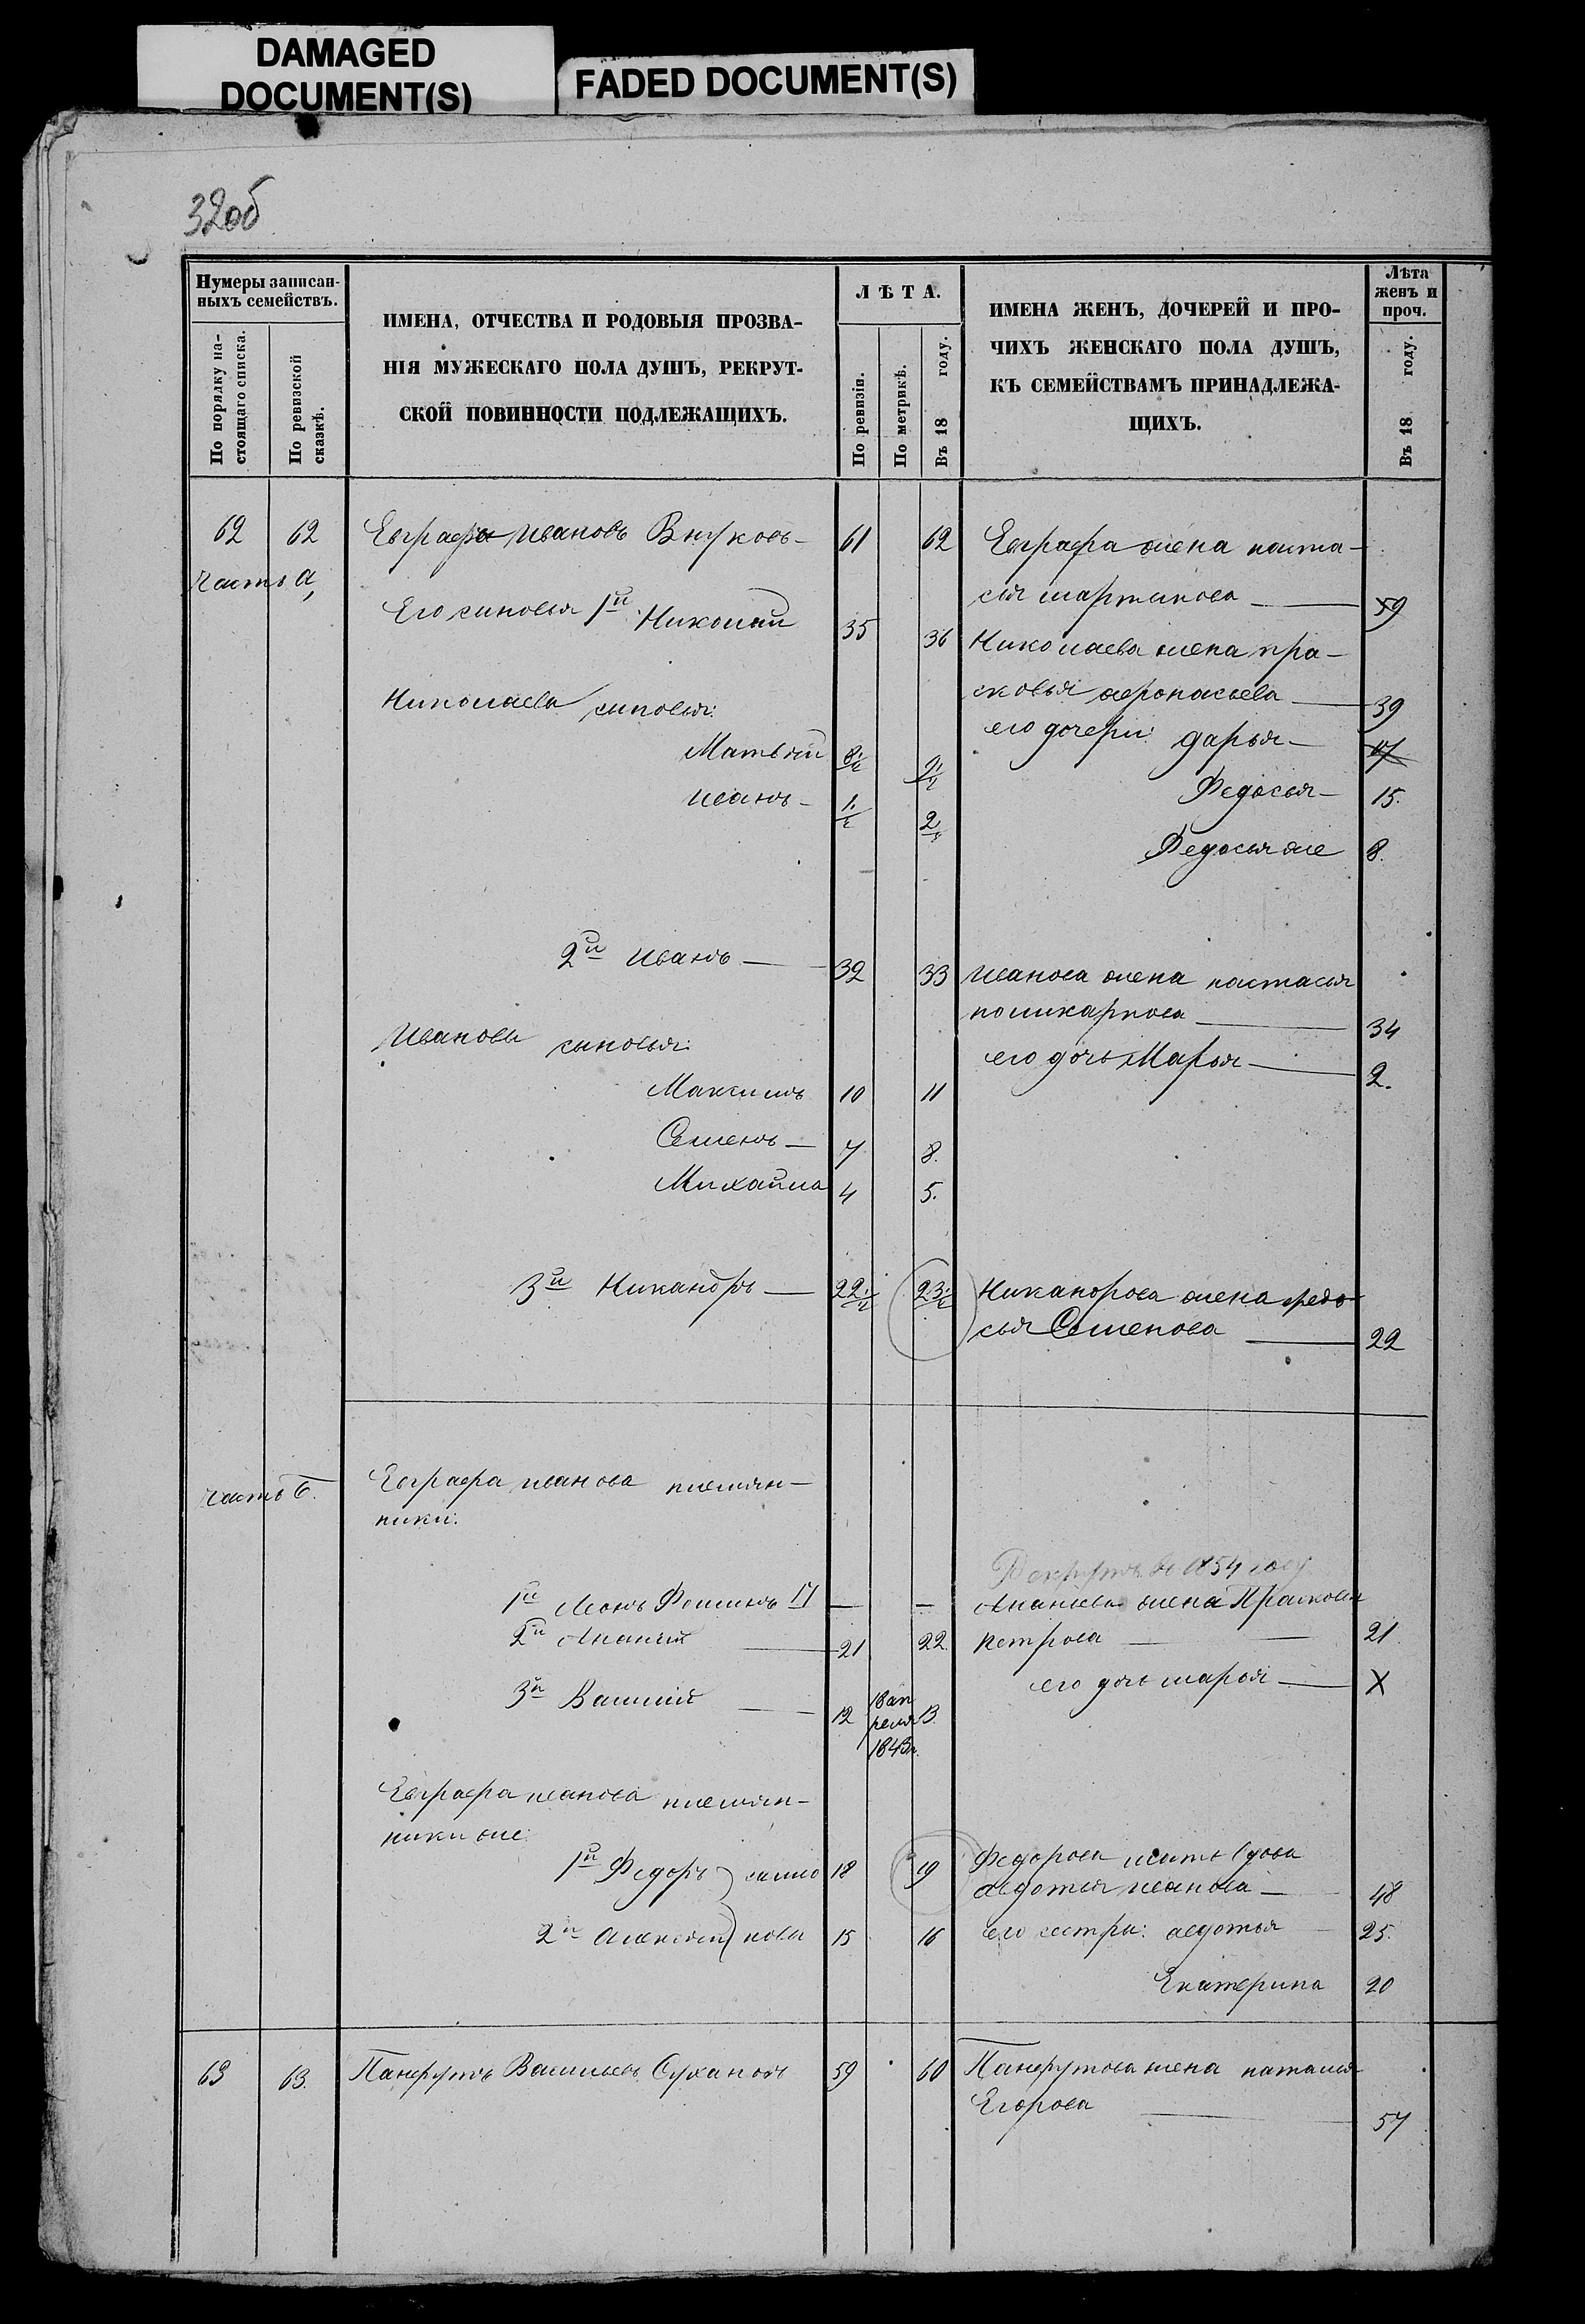 DAMAGED
DOCUMENT(S)
FADED DOCUMENT(S)
32об
Нумеры записан-
ныхъ семействъ.
По порядку на-
стоящаго списка.
По ревизской
сказкѣ.
ИМЕНА, ОТЧЕСТВА И РОДОВЫЯ ПРОЗВА-
НІЯ МУЖЕСКАГО ПОЛА ДУШЪ, РЕКРУТ-
СКОЙ ПОВИННОСТИ ПОДЛЕЖАЩИХЪ.
ЛѢТА.
По ревизіи.
По метрикѣ.
Въ 18 году.
ИМЕНА ЖЕНЪ, ДОЧЕРЕЙ И ПРО-
ЧИХЪ ЖЕНСКАГО ПОЛА ДУШЪ,
КЪ СЕМЕЙСТВАМЪ ПРИНАДЛЕЖА-
ЩИХЪ.
Лѣта
женъ и
проч.
Въ 18 году.
62 62 Евграфъ Ивановъ Внуковъ 61 62 Евграфа жена наста-
часть а, сья мартинова 59
Его сыновья 1й Николай 35 36 Николаева жена пра-
сковья афонасьева 39
Николаевы сыновья:
его дочери: дарья 17
Матвѣй 8½ 9½
Федосья 15.
Иванъ 1½ 2½
Федосья же 8.
2й Иванъ 32 33 Иванова жена настасья
поликарпова 34
Ивановы сыновья:
его дочь Марья 2.
Максимъ 10 11
Семенъ 7 8.
Михайла 4 5.
3й Никандръ 22½ 23½ Никанорова жена федо-
сья Семенова 22
часть б. Евграфа иванова племян-
ники:
Рекрутъ въ 1854 году
1й Леонъ Фоминъ
Ананьева жена Прасковья
2й Ананій 21 22 петрова 21
его дочь марья X
3й Василій 12 18 ап
реля 13.
1843г.
Евграфа иванова племян-
ники же:
1й Федоръ 18 19 Федорова мать вдова
авдотья иванова 48
2й Алексѣй 15 16 его сестры: авдотья 25.
Екатерина 20
63 63. Панфутъ Васильевъ Сухановъ 59 60 Панфутова жена наталья
Егорова 57